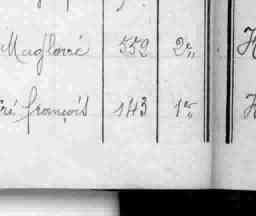 Magloire 552 2"
ré françois 143 1"